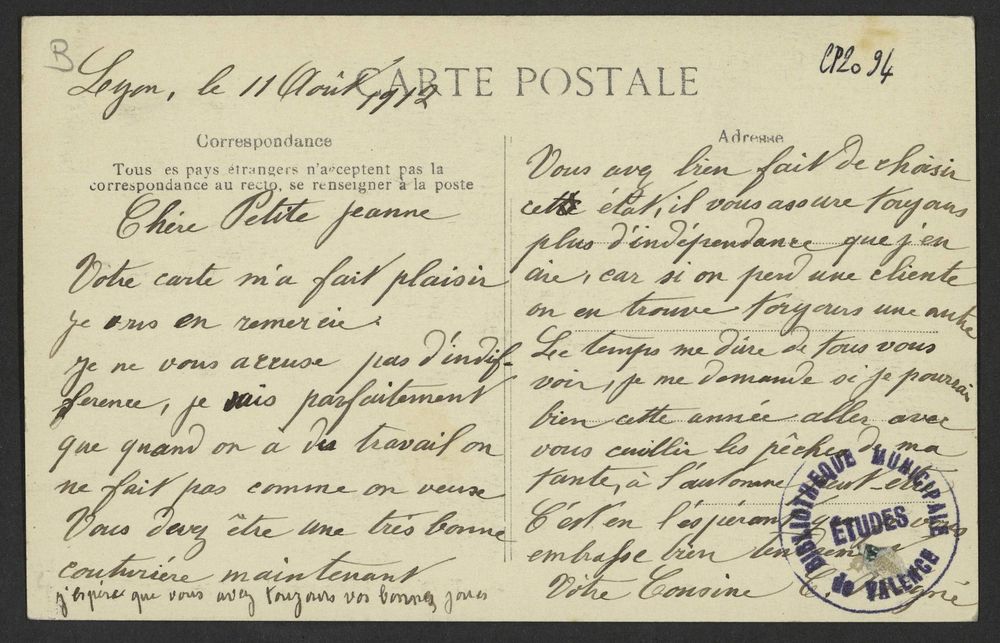 B
CP20 94
Lyon, le 11 Août 1912
CARTE POSTALE
Correspondance
Tous es pays étrangers n'acceptent pas la
correspondance au recto, se renseigner à la poste
Chère Petite Jeanne
Votre carte m'a fait plaisir
je vous en remercie.
Je ne vous accuse pas d'indif-
ference, je sais parfaitement
que quand on a du travail on
ne fait pas comme on veux
Vous devez être une très bonne
couturière maintenant
j'espère que vous avez toujours vos bonnes joues
Adresse
Vous avez bien fait de choisir
cette état, il vous assure toujours
plus d'indépendance que j'en
ai, car si on perd une cliente
on en trouve toujours une autre
Le temps me dure de tous vous
voir, je me demande si je pourrai
bien cette année aller avec
vous cuillir les pêches de ma
tante, à l'automne peut-être
C'est en l'espérant que je vous
embrasse bien tendrement
Votre Cousine C.
BIBLIOTHEQUE MUNICIPALE
ETUDES
DE VALENCE